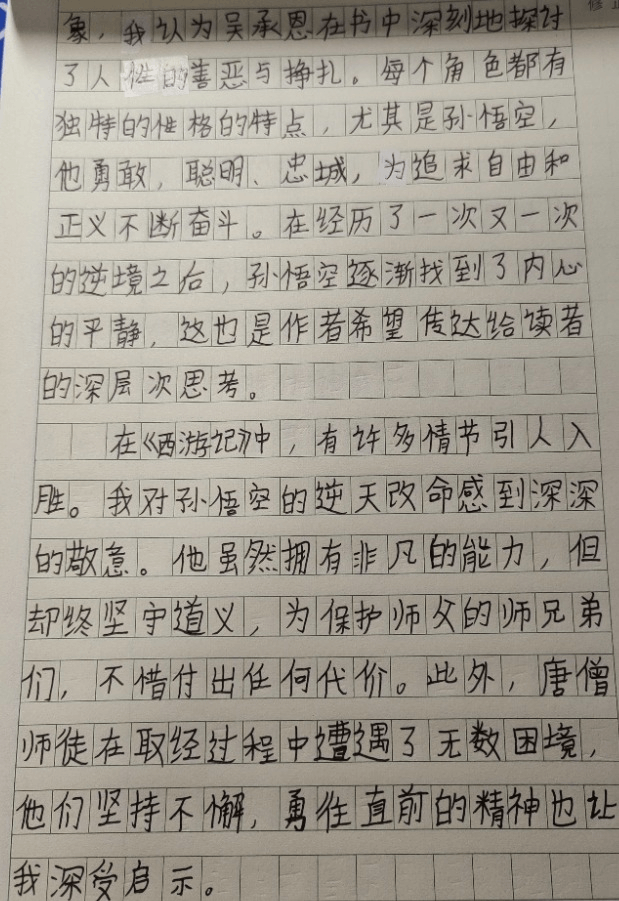 象，我认为吴承恩在书中深刻地探讨
了人性的善恶与挣扎。每个角色都有
独特的性格的特点，尤其是孙悟空，
他勇敢，聪明、忠城，为追求自由和
正义不断奋斗。在经历了一次又一次
的逆境之后，孙悟空逐渐找到了内心
的平静，这也是作者希望传达给读者
的深层次思考。
在《西游记》中，有许多情节引人入
胜。我对孙悟空的逆天改命感到深深
的敬意。他虽然拥有非凡的能力，但
却终坚守道义，为保护师父的师兄弟
们，不惜付出任何代价。此外，唐僧
师徒在取经过程中遭遇了无数困境，
他们坚持不懈，勇往直前的精神也让
我深受启示。